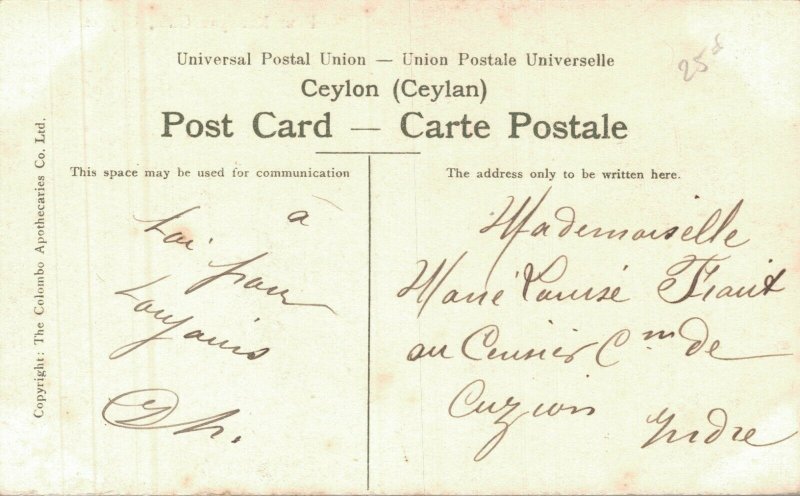 Universal Postal Union — Union Postale Universelle
25
Ceylon (Ceylan)
Post Card — Carte Postale
This space may be used for communication
The address only to be written here.
à
toi pour
toujours
Copyright: The Colombo Apothecaries Co. Ltd.
Mademoiselle
Marie Louise
au Cerisier Cne de
Cuzion Indre